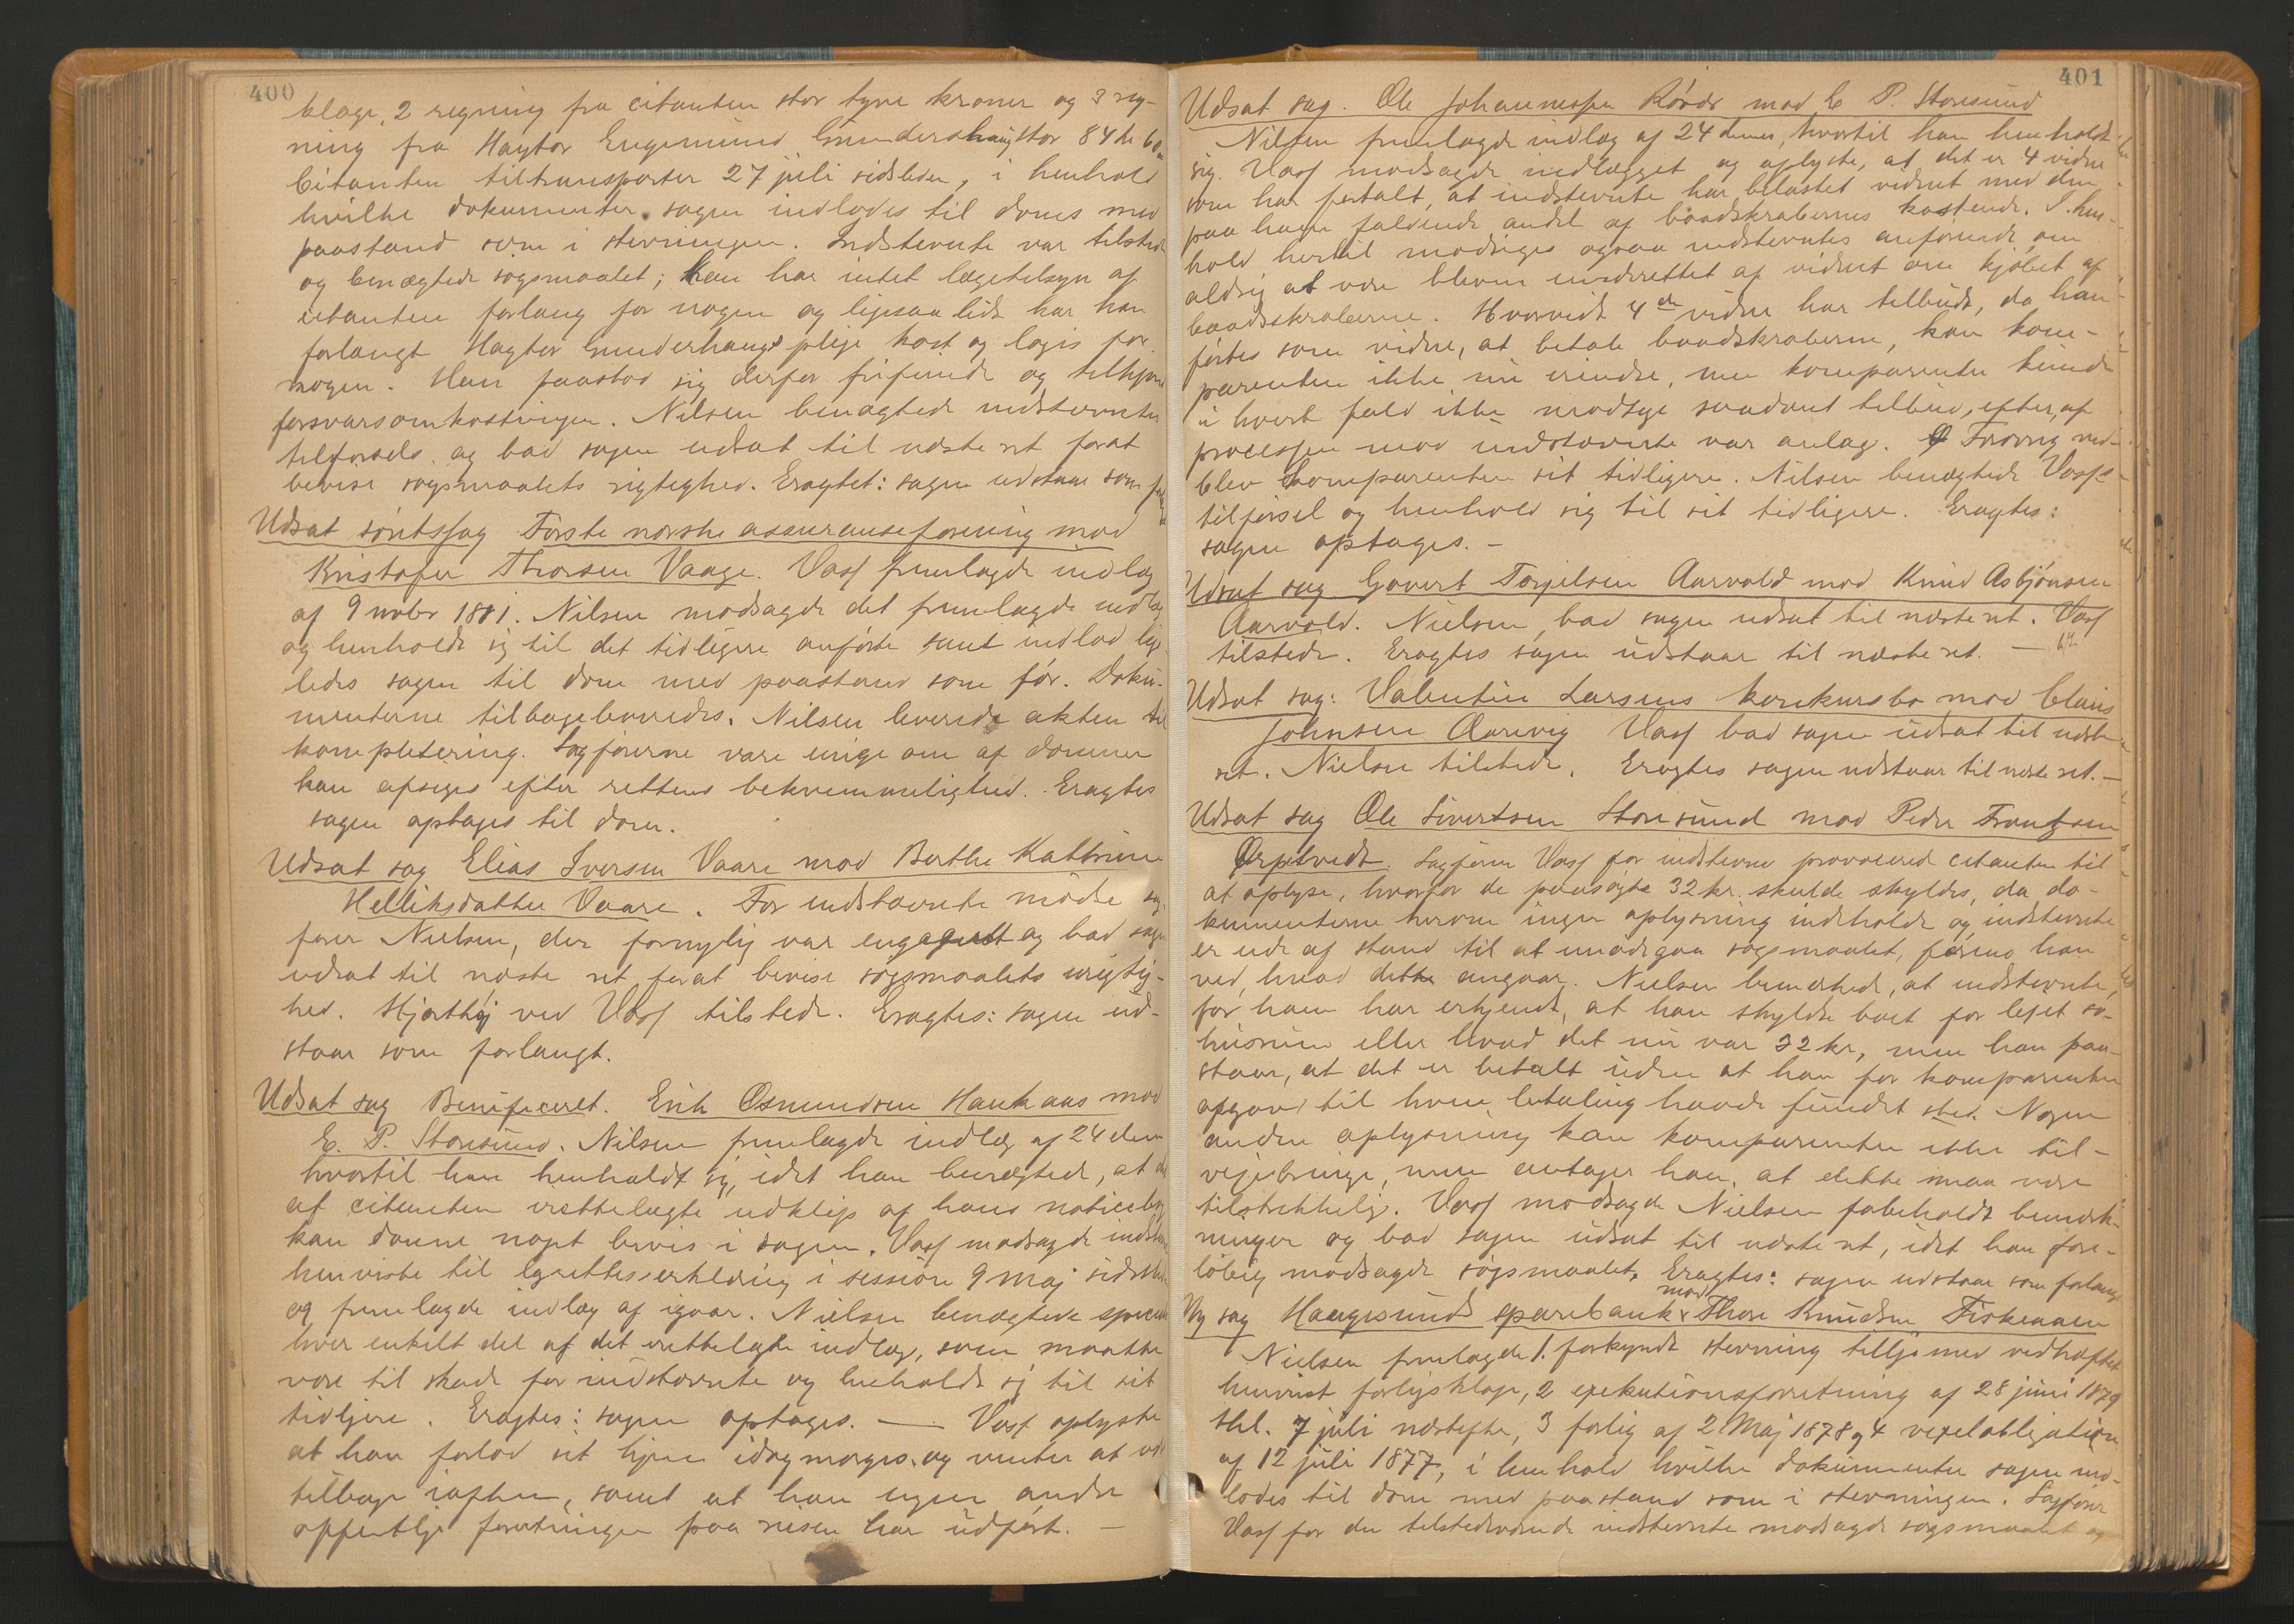 400
klage, 2 regning fra citanten stor tyve kroner og 3 reg-
ning fra Hagtor Engemund Gundershaug stor 84 kr 60
Citanten tiltransporter 27 juli sidsleden, i henhold
hvilke dokumenter sagen indlodes til doms med
paastand som i stevningen. Indstevnte var tilstede
og benægtede søgsmaalet; han har intet lægetilsyn af
citanten forlang for nogen og ligesaa lidt har han
forlangt Hagtor Gunderhaugs pleje kost og logis for
nogen. Han paastod sig derfor frifunden og tilkjend
forsvarsomkostninger. Nilsen benægtede indstevnte
tilførsels og bad sagen udsat til næste ret forat
bevise søgsmaalets rigtighed. Eragtet: sagen udstaar som
Udsat søretssag Første norske assuranseforening mod
Kristofer Thorsen Vaage. Vasf fremlagde indlæg
af 9 novbr 1881. Nilsen modsagde det fremlagde indlæg
og henholdt sig til det tidligere anførte samt indlod lige
ledes sagen til dom med paastand som før. Doku-
menterne tilbageleveredes. Nilsen leverede akten til
kompletering. Sagførerne vare enige om at dommen
kan afsiges efter rettens bekvemmelighed. Eragtes
sagen optages til dom.
Udsat sag Elias Iversen Vaare mod Berthe Kathrine
Helliksdatter Vaare. For indstævnte mødte sag
fører Nielsen, der fornylig var engageret og bad sagen
udsat til næste ret forat bevise søgsmaalets urigtig-
hed. Hjorthøj ved Vasf tilstede. Eragtes: sagen ud-
staar som forlangt.
Udsat sag Benificeret. Erik Osmundsen Haukaas mod
E. P. Storesund. Nilsen fremlagde indlæg af 24 dennes
hvortil han henholdt sig, idet han benægtede, at
af citanten irettelagte udklip af hans notice
kan danne noget bevis i sagen. Vasf modsagde
henviste til lagrettes erklæring i session 9 maj
og fremlagde indlæg af igaar. Nielsen benægtede
hver enkelt del af det irettelagte indlæg, som maatte
være til skade for indstævnte og henholdt sig til sit
tidligere. Eragtes: sagen optages. — Vasf oplyste
at han forlod sit hjem idag morges og venter at
tilbage iaften, samt at han ingen andre
offentlige forretninger paa reisen har udført. —
401
Udsat sag. Ole Johannesen Røvær mod E P. Storesund
Nilsen fremlagde indlæg af 24 dennes, hvortil han henholdt
sig. Vasf modsagde indlægget og oplyste, at det er 4 vidne
som har fortalt, at indstevnte har belastet vidnet med den
paa ham faldende andel af baadskrabernes kostende. I hen-
hold hertil modsiges ogsaa indstevntes anførende om
aldrig at være bleven underrettet af vidnet om kjøbet af
baadsskraberne. Hvorvidt 4de vidne har tilbudt, da han
førtes som vidne, at betale baadskraberne, kan kom-
parenten ikke nu erindre, men komparenten kunde
i hvert fald ikke modtage saadant tilbud, efter at
processen mod indstævnte var anlag. Forøvrig ved-
blev komparenten sit tidligere. Nilsen benægtede Vasfs
tilførsel og henhold sig til sit tidligere. Eragtes:
sagen optages. -
Udsat sag Govert Torjelsen Aarvold mod Knud Asbjønsen
Aarvold. Nielsen bad sagen udsat til næste ret. Vasf
tilstede. Eragtes sagen udstaar til næste ret. —
Udsat sag: Valentin Larsens konkursbo mod Claus
Johnsen Aarevig Vasf bad sagen udsat til næste
ret. Nielsen tilstede. Eragtes sagen udstaar til næste ret. —
Udsat sag Ole Sivertsen Storesund mod Peder Frantzsen
Ørpetvedt. Sagfører Vasf for indstevnte provocered citanten til
at oplyse, hvorfor de paasøgte 32 kr. skulde skyldes, da do-
kumenterne herom ingen oplysning indeholdt og indstevnte
er ude af stand til at imødegaa søgsmaalet, førend han
ved, hvad dette angaar. Nielsen bemerkede, at indstevnte,
for ham har erkjendt, at han skyldte boet for lejet sø-
husrum eller hvad det nu var 32 kr, men han paa-
staar, at det er betalt uden at han for komparenten
opgav til hvem betaling havde fundet sted. Nogen
anden oplysning kan komparenten ikke til-
vejebringe, men antager han, at dette maa være
tilstrekkelig. Vasf modsagde Nielsen forbeholdt bemærk-
ninger og bad sagen udsat til næste ret, idet han fore-
løbig modsagde søgsmaalet. Eragtes: sagen udstaar som forlangt
Ny sag Haugesunds sparebank mod Thore Knudsen Fiskeaaen
Nielsen fremlagde 1. forkyndt stevning tilligemed vedhæftet
henvist forligsklage, 2 exekutionsforretning af 28 juni 1879
thl. 7 juli næstefter, 3 forlig af 2 Maj 1878 og 4 vexelobligation
af 12 juli 1877, i henhold hvilke dokumenter sagen ind-
lodes til dom med paastand som i stevningen. Sagfører
Vasf for den tilstedeværende indstevnte modsagde søgsmaalet og